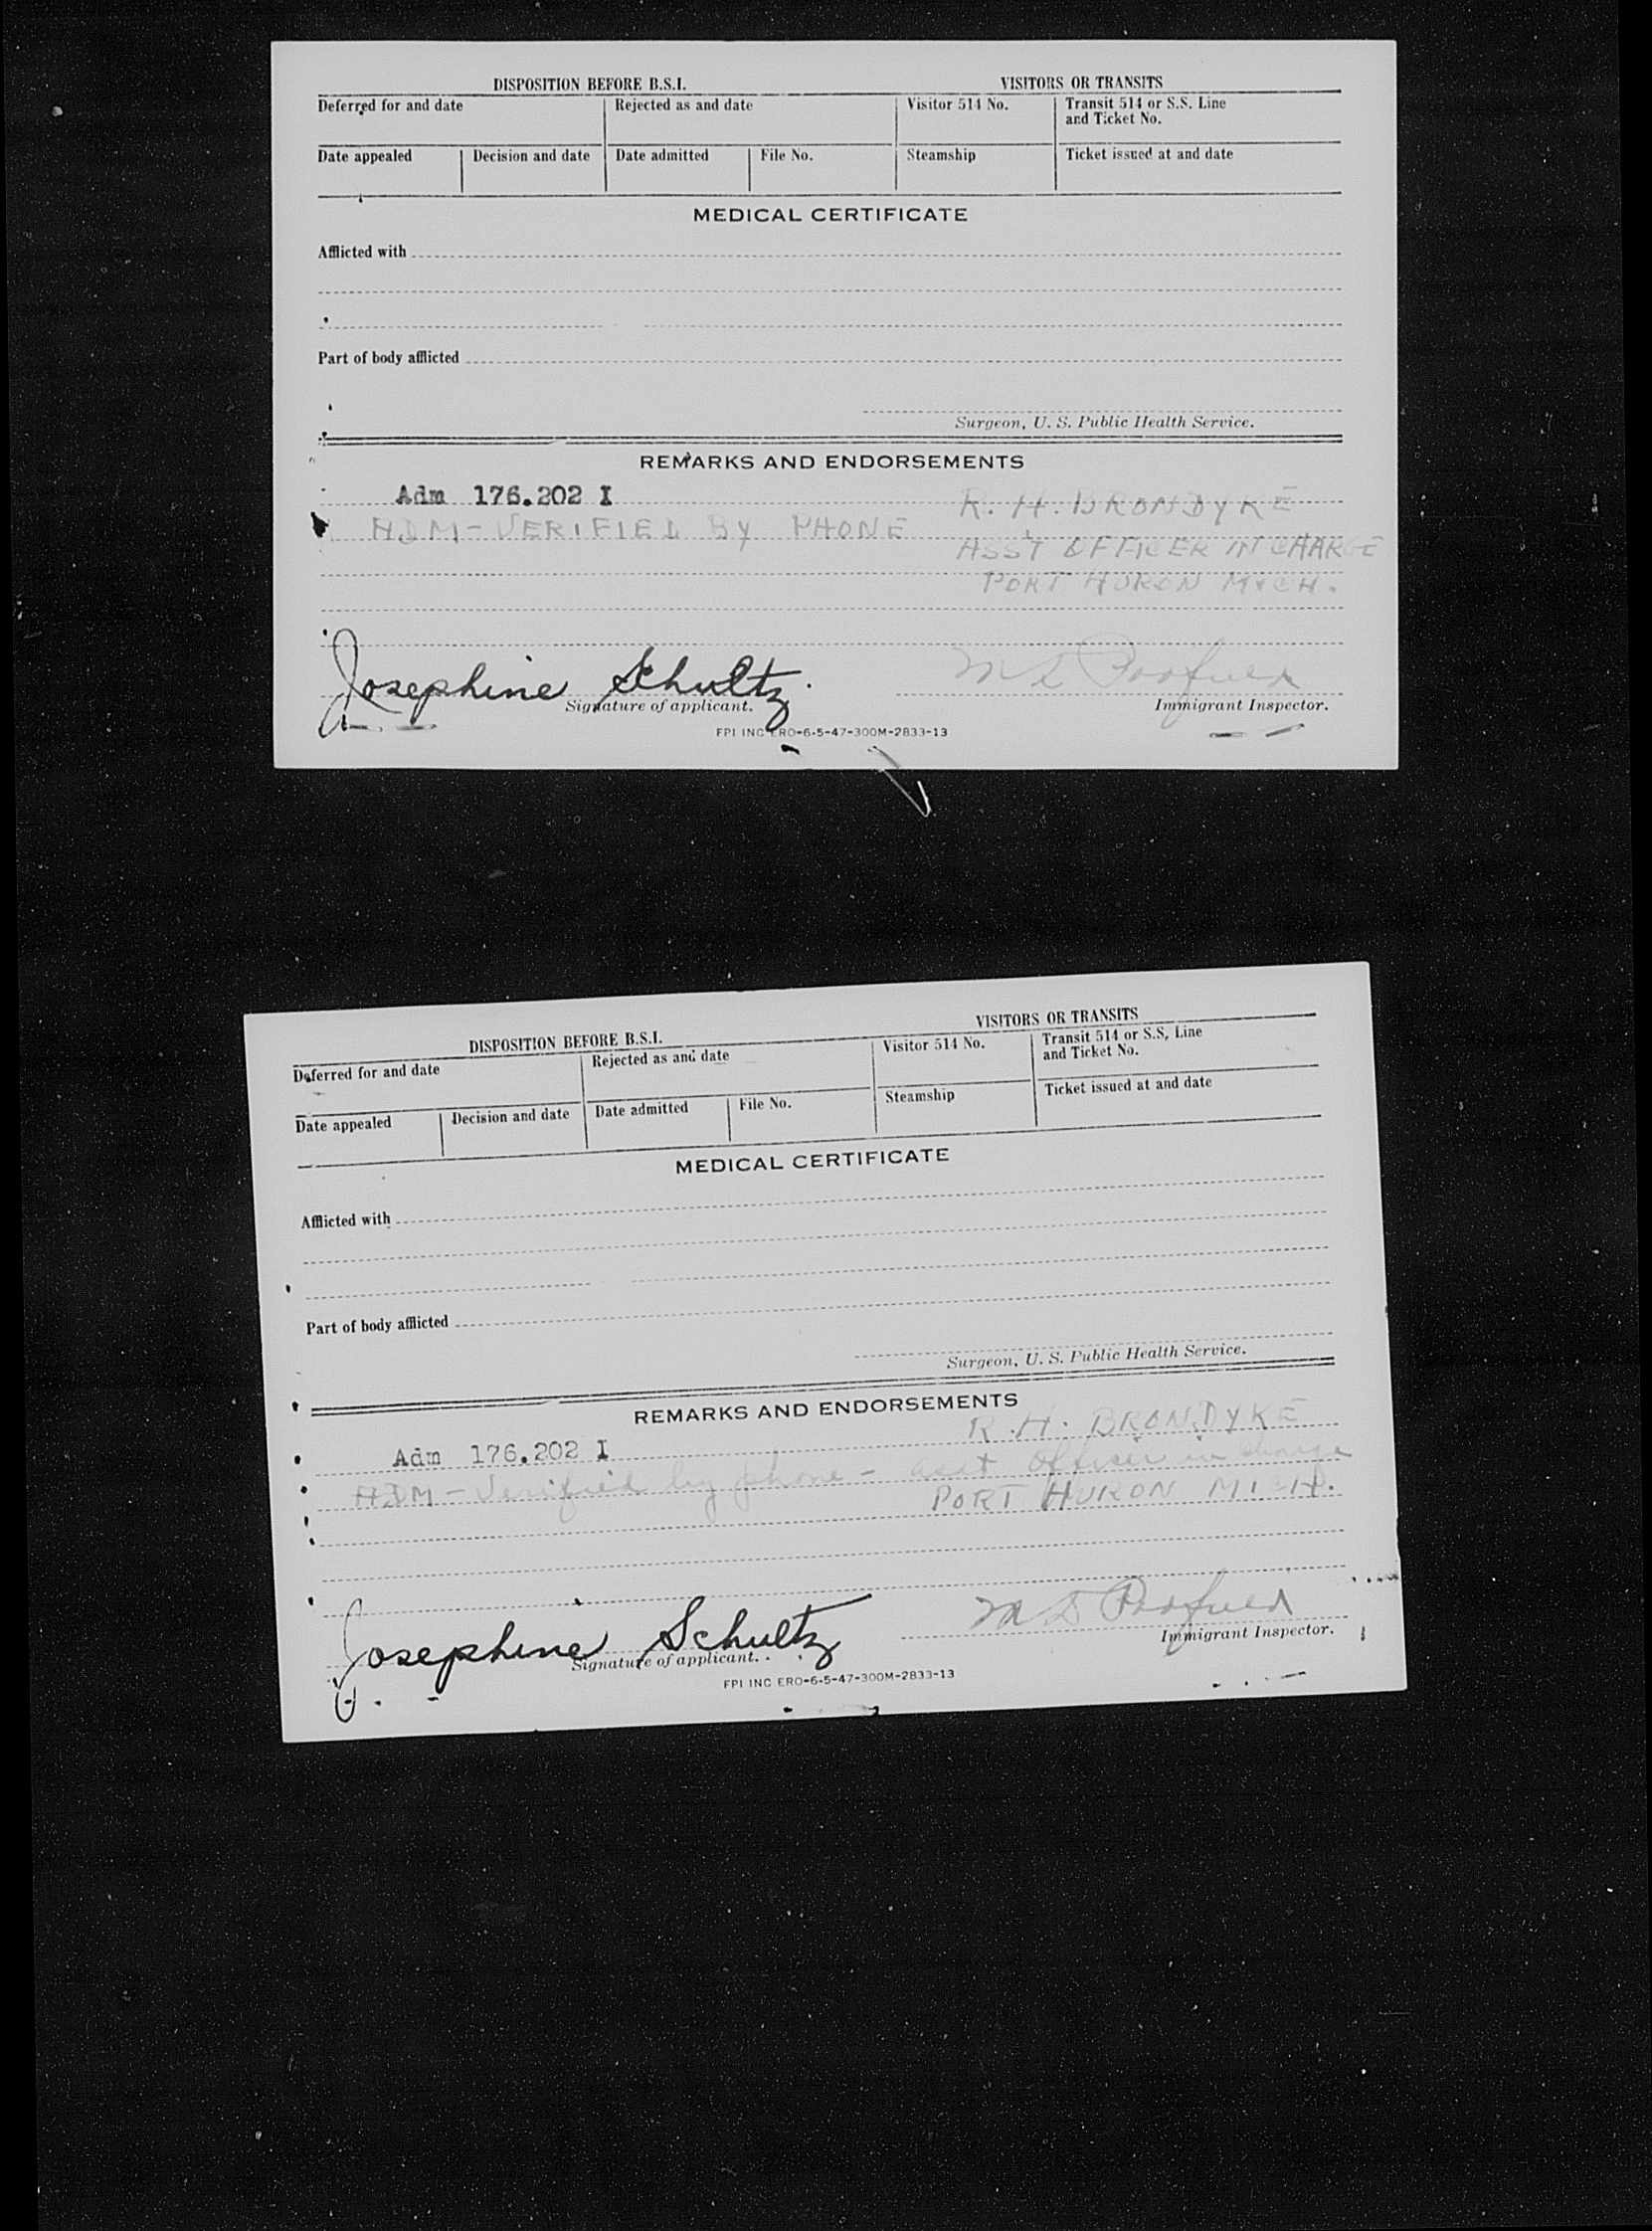 DISPOSITION BEFORE B.S.I. VISITORS OR TRANSITS
Deferred for and date Rejected as and date Visitor 514 No. Transit 514 or S.S. Line
and Ticket No.
Date appealed Decision and date Date admitted File No. Steamship Ticket issued at and date
MEDICAL CERTIFICATE
Afflicted with
Part of body afflicted
Surgeon, U. S. Public Health Service.
REMARKS AND ENDORSEMENTS
Adm 176.202 I R. H. BRONDYKE
ADM-VERIFIED BY PHONE ASS'T OFFICER IN CHARGE
PORT HURON MICH.
Josephine Schultz
Signature of applicant. Immigrant Inspector.
FPI INC ERO-6-5-47-300M-2833-13
DISPOSITION BEFORE B.S.I. VISITORS OR TRANSITS
Deferred for and date Rejected as and date Visitor 514 No. Transit 514 or S.S, Line
and Ticket No.
Date appealed Decision and date Date admitted File No. Steamship Ticket issued at and date
MEDICAL CERTIFICATE
Afflicted with
Part of body afflicted
Surgeon, U. S. Public Health Service.
REMARKS AND ENDORSEMENTS
Adm 176.202 I R. H. BRONDYKE
ADM-Verified by phone - asst officer in charge
PORT HURON MICH.
Josephine Schultz
Signature of applicant. Immigrant Inspector.
FPI INC ERO-6-5-47-300M-2833-13